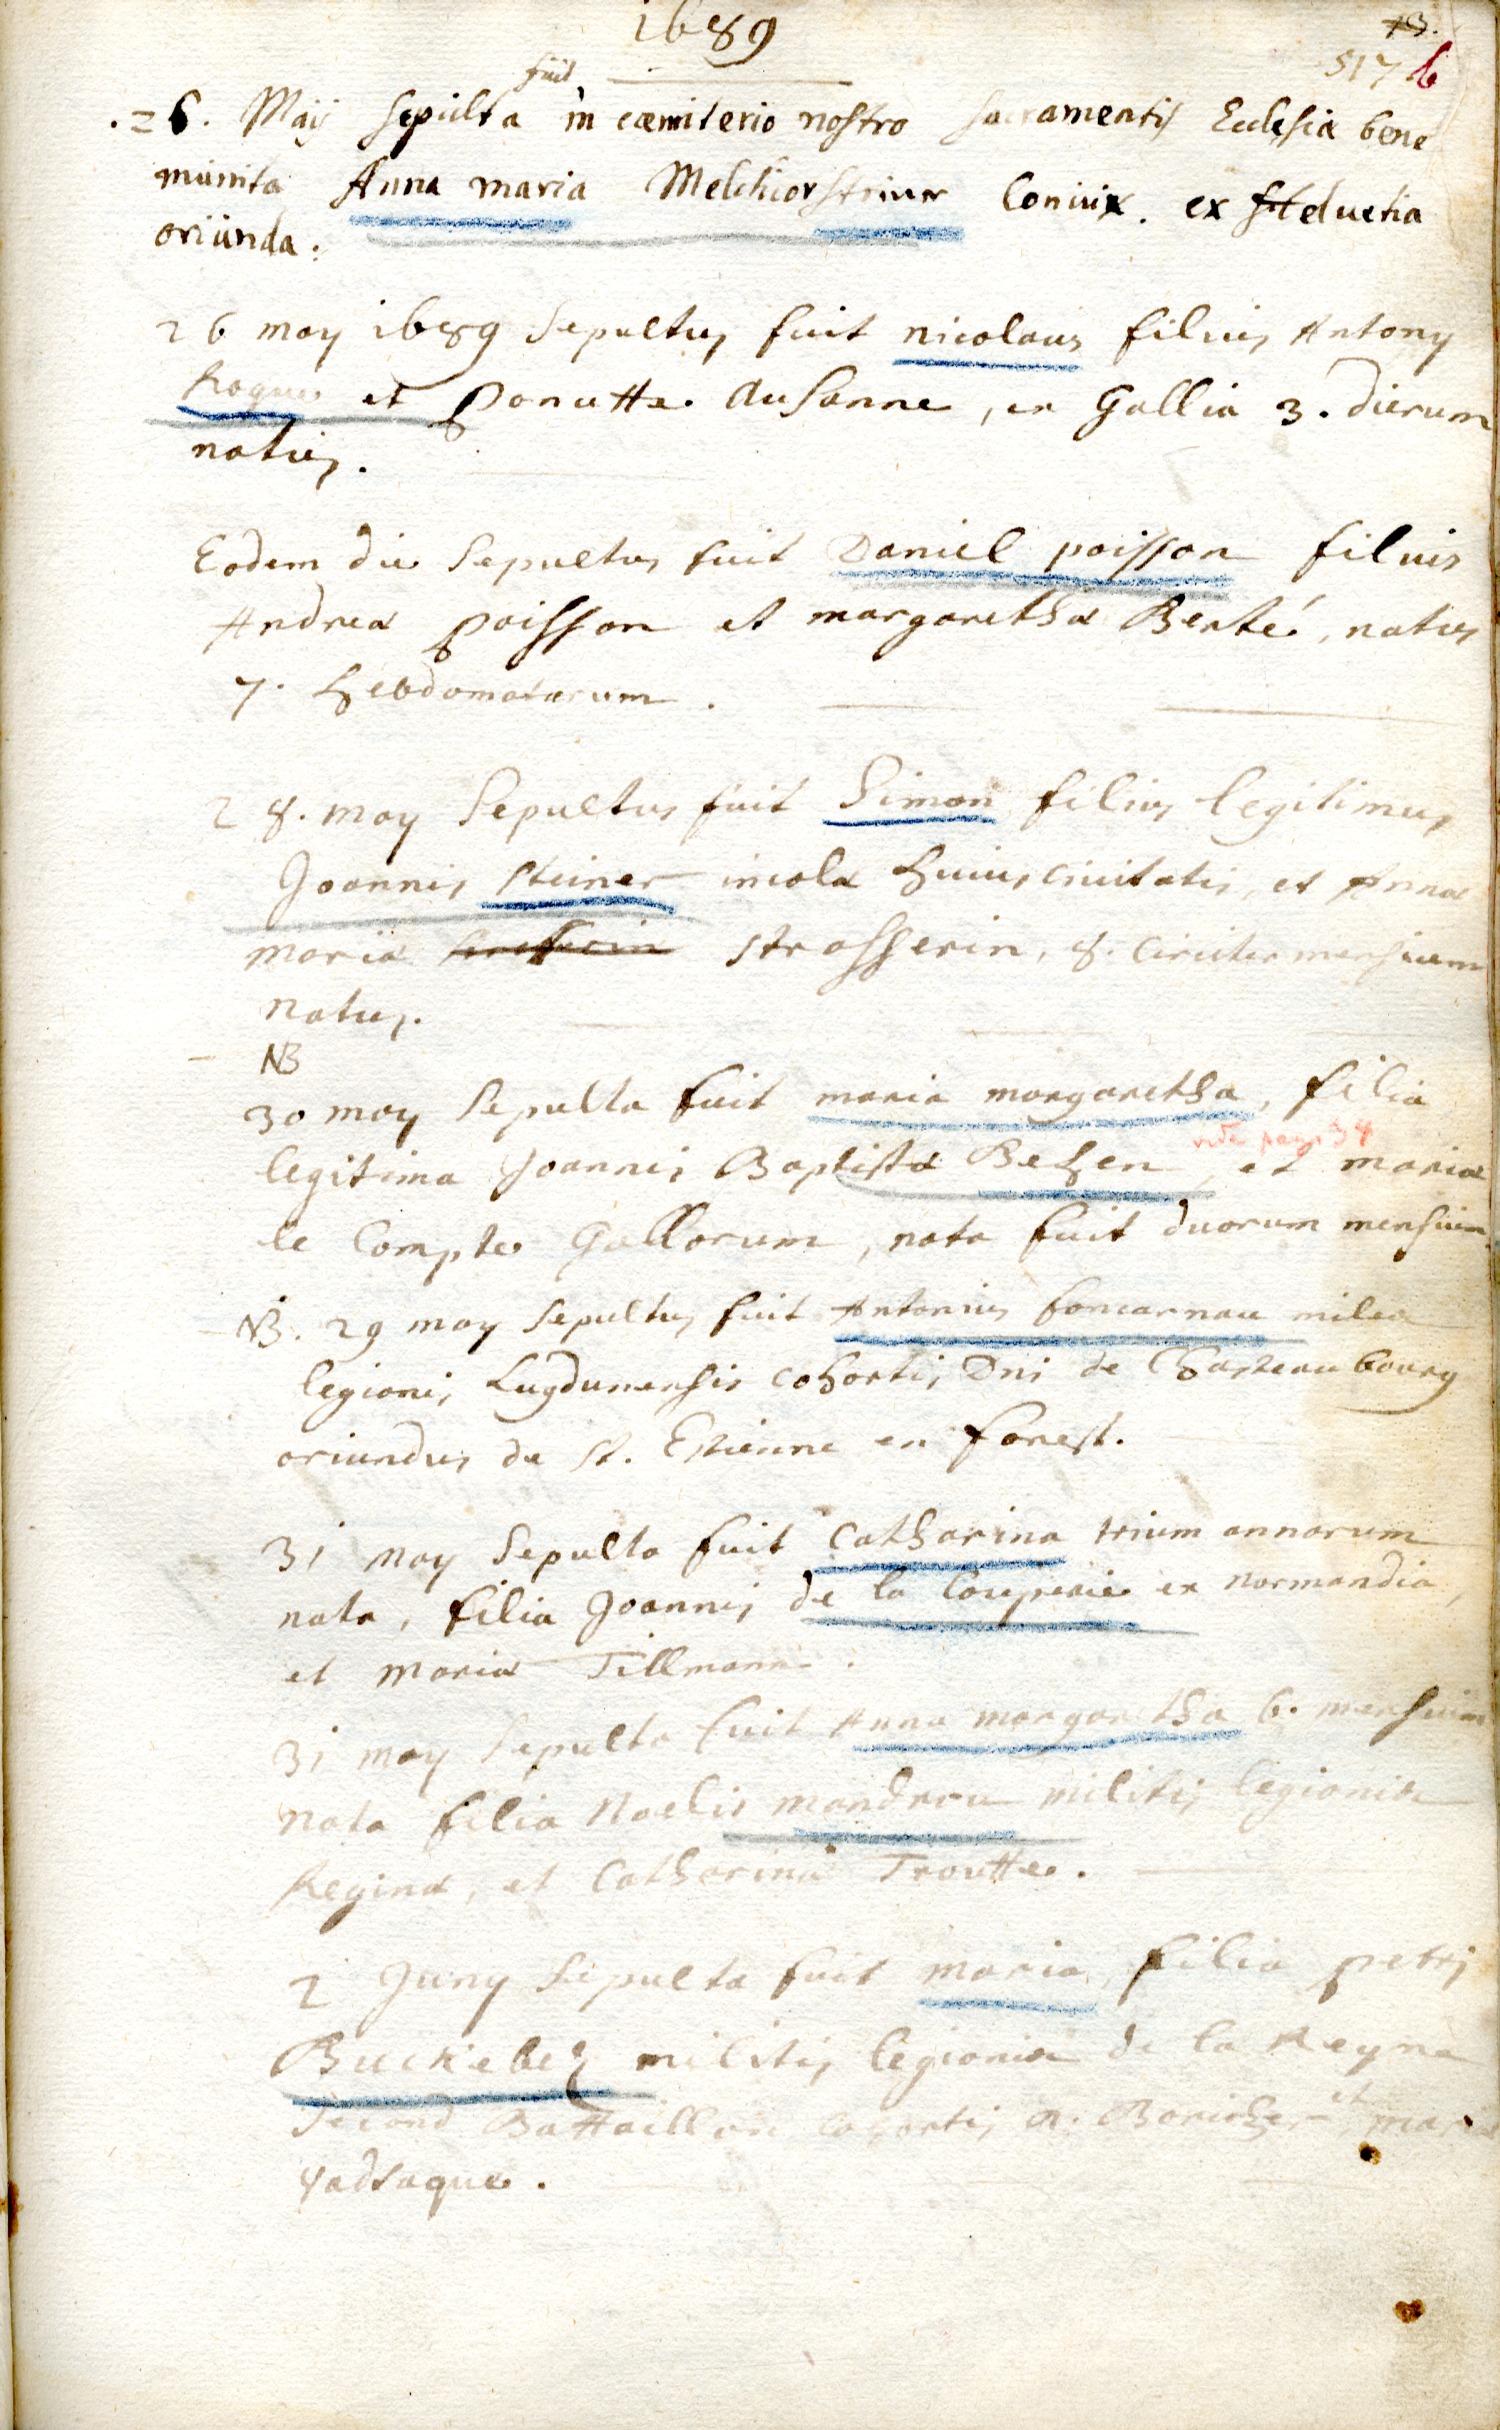 1689
73.
517 b
fuit
26. Maij Sepulta in cæmiterio nostro sacramentis Ecclesiæ bene
munita Anna maria Melchior striver Coniux. ex Helvetia
oriunda.
26 may 1689 Sepultus fuit nicolaus filius Antony
Roque et Ponette Ausanne, ex Gallia 3. dierum
natus.
Eodem die Sepultus fuit Daniel poisson filius
Andreæ poisson et margarethæ Berté, natus
7. hebdomatarum.
28. may Sepultus fuit Simon filius legitimus
Joannis steiner incolæ huius civitatis et Annæ
mariæ strosserin, 8. circiter mensium
natus.
NB
30 may Sepulta fuit maria margaretha, filia
vide pag. 38
legitima Joannis Baptistæ Behen, et mariæ
le Compte Gallorum, nata fuit duorum mensium.
NB. 29 may Sepultus fuit Antonius foncarnau miles
legionis Lugdunensis cohortis Dni de Chasteaubourg
oriundus de St. Estienne en forest.
31 may Sepulta fuit Catharina trium annorum
nata, filia Joannis de la Couperie ex normandia,
et mariæ Tillmann.
31 may Sepulta fuit Anna margaretha 6. mensium
nata filia Noelis mandrou militis legionis
Reginæ, et Catharinæ Troutte.
2 Juny Sepulta fuit maria filia petri
Buckebez militis legionis de la Reyne
second Battaillon cohortis et mariæ